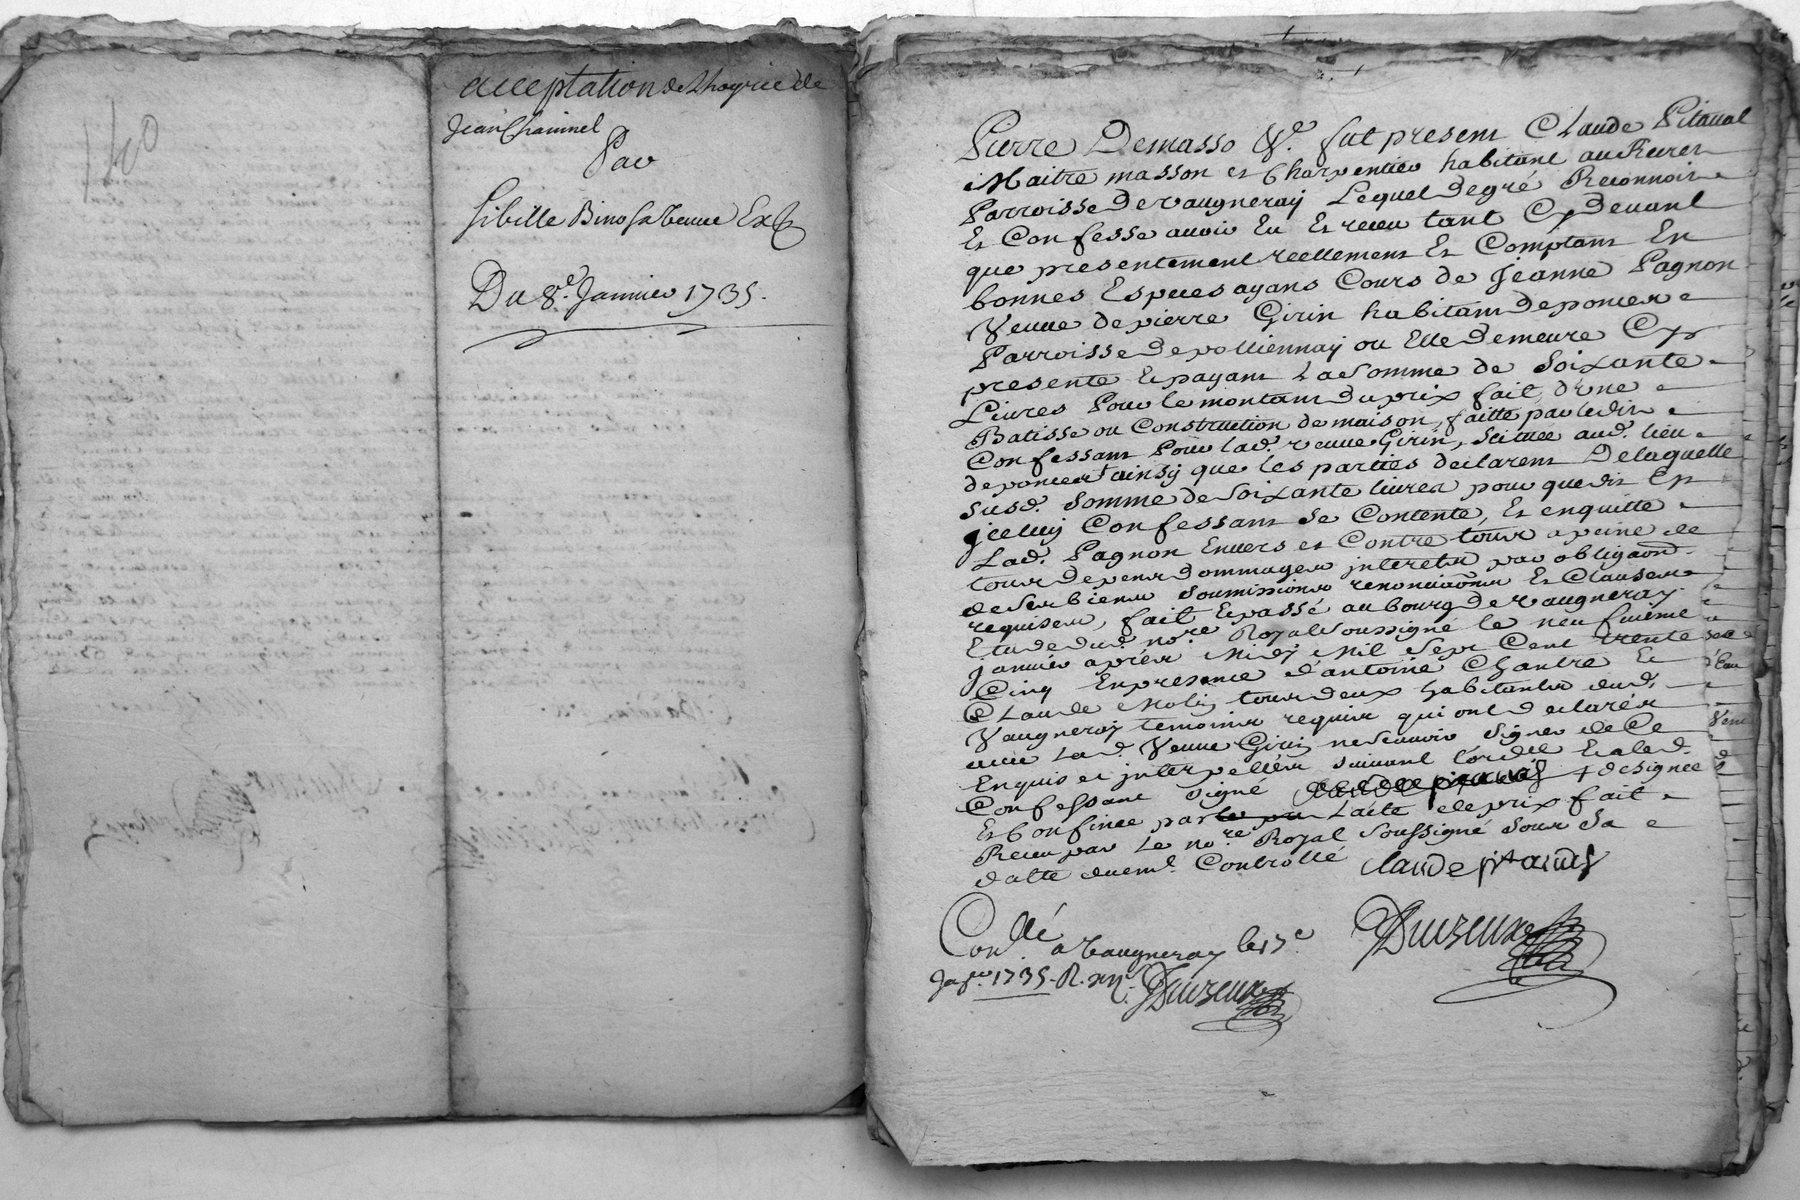 140
acceptation de Lhoyrie de
Jean Chaninel
Par
Sibille Bino Sa veuve
Du 8e. Janvier 1735.
Pierre Demasso fut present Claude Pitaval
Maitre masson et Charpentier habitant au
Parroisse de vaugneray Lequel de gré Reconnoit
Et Confesse avoir Eu Et receu tant Cy devant
que presentement reellement Et Comptant En
bonnes Especes ayans Cours de Jeanne Pagnon
Veuve de pierre Girin habitant de
Parroisse de polliennay ou Elle demeure Cy
presente Et payant La somme de Soixante
Livres Pour le montant du prix fait, d'une
Batisse ou Construction de maison, faitte par ledit
Confessant Pour lad. veuve Girin, Scituee aud. lieu
ainsy que les parties declarent De laquelle
susd. Somme de Soixante livres pour que dit Est
jceluy Confessant Se Contente, Et enquitte
Lad. Pagnon Envers et Contre tous a peine de
tous depens dommages interets par obligaon.
de Ses biens Soumissions renonciaons Et Clauses
requises, fait Et passé au bourg de vaugneray
Etude dud. nore. Royal Soussigné le neufvieme
janvier apres Midy Mil Sept Cent trente
Cinq En presence d'antoine Chantre Et
Claude Molin tous deux habitants dud.
Vaugneray temoins requis qui ont declarés
avec Lad. Veuve Girin ne Scavoir Signer de Ce
Enquis et interpellés suivant l'ordce Et a led.
Confessant Signé + designée
Et Confinée par Lacte de prix fait
Receu par Le nore. Royal Soussigné Sous Sa
datte duem. Controllé claude pitaval
Conllé
a Vaugneray le 17e
1735. R.